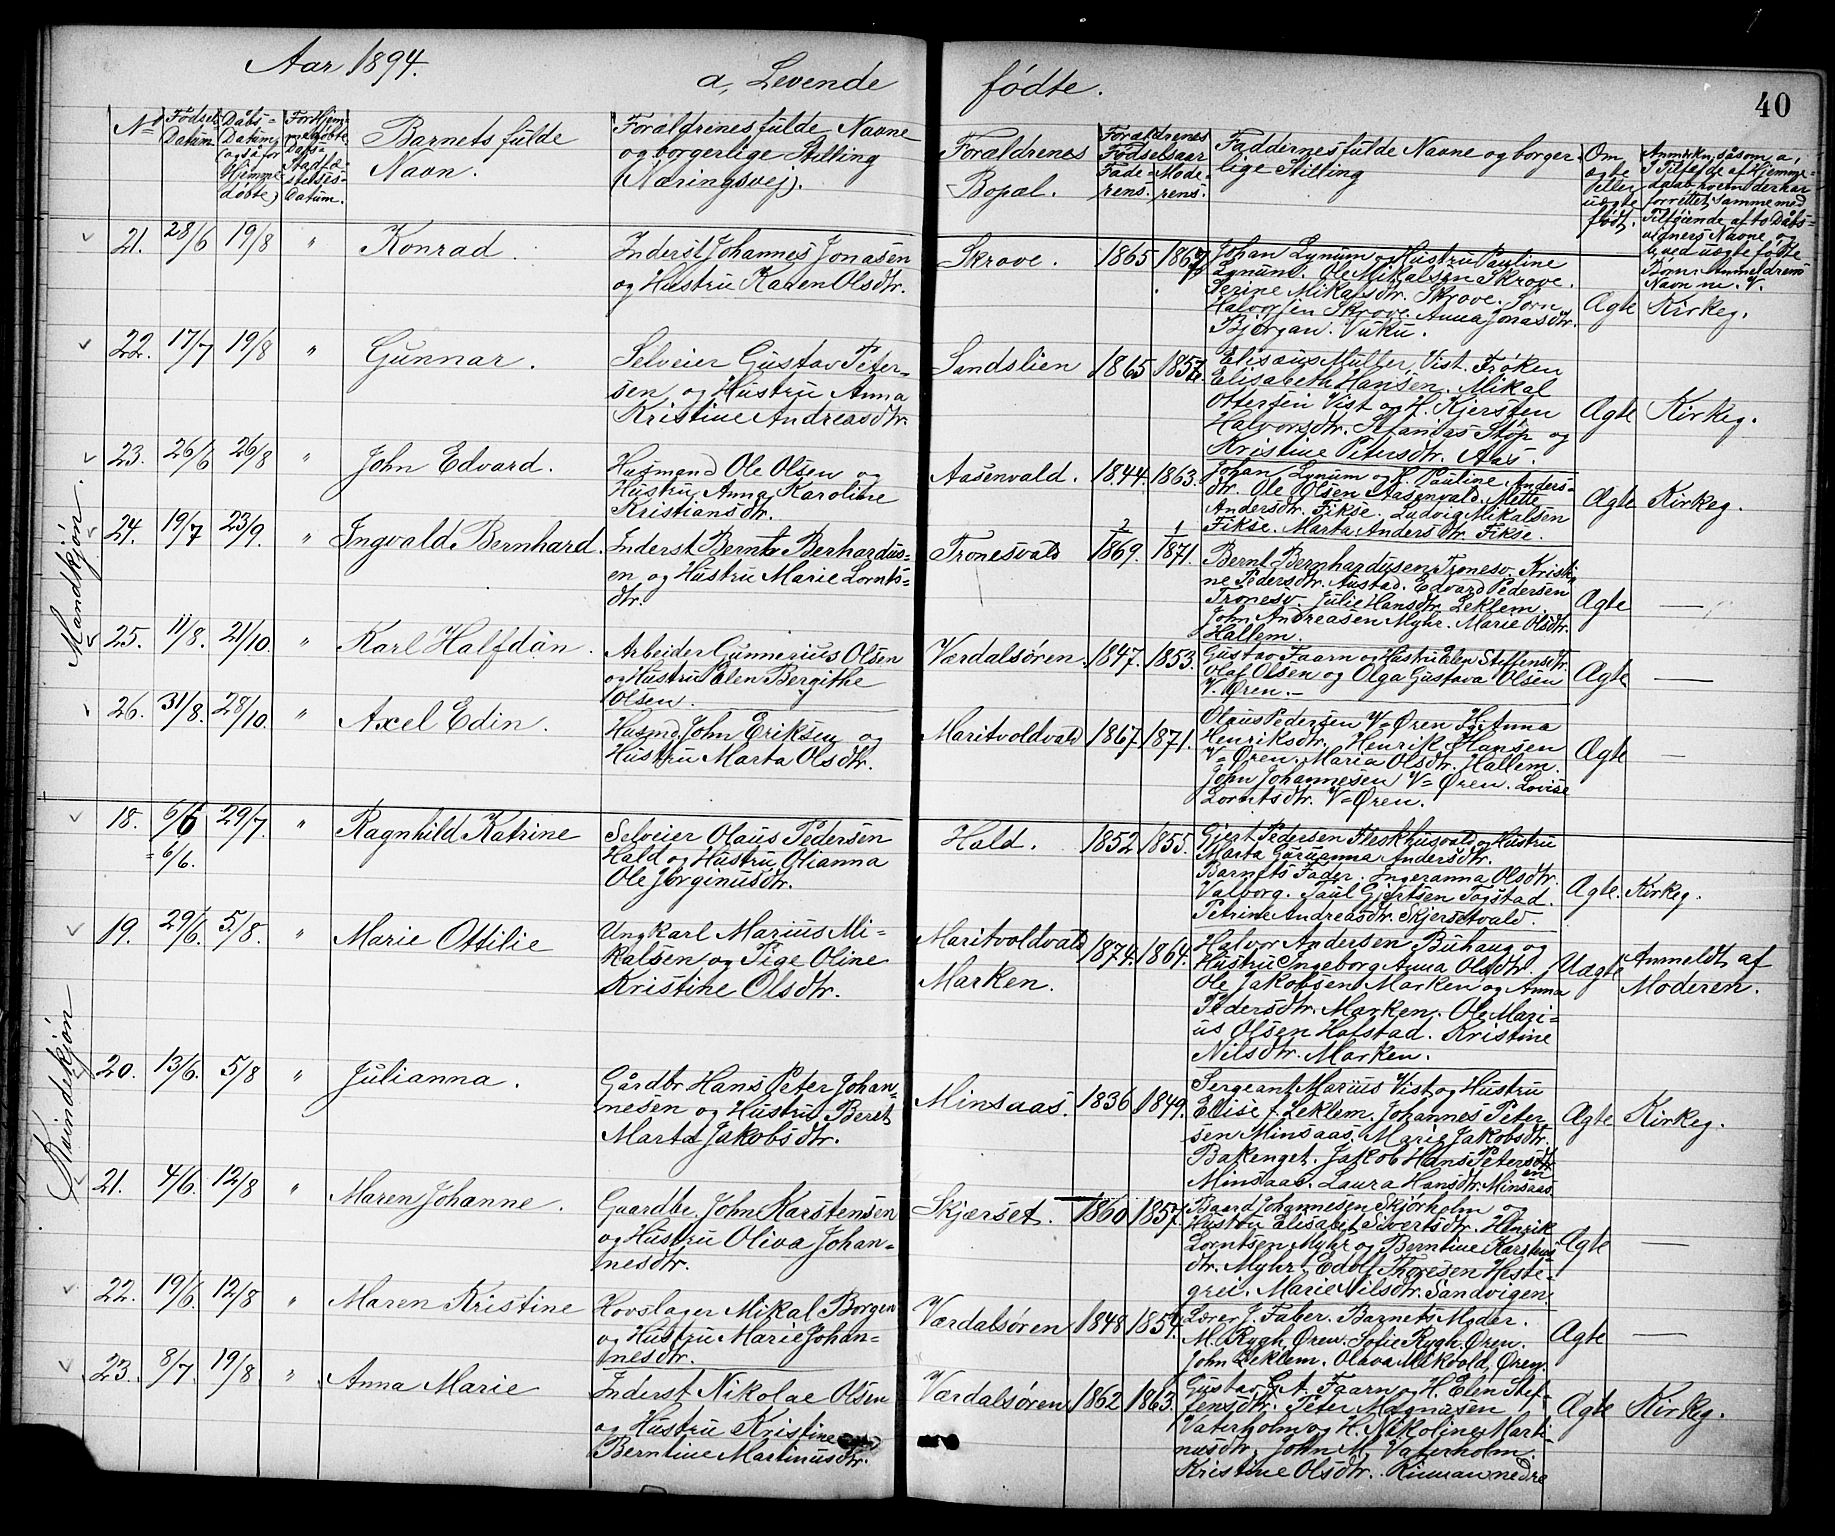 Aar 1894.
a, Levende fødte.
40
No
Fødsels Datum
Dåbs-Datum (også for Hjemmedøbte)
For Hjemmedøbte Dåbs Stadfæstelses-Datum.
Barnets fulde Navn.
Forældrenes fulde Navne og borgerlige Stilling (Næringsvej).
Forældrenes Bopæl.
Forældrenes Fødselsaar
Faderens. Moderens.
Faddernes fulde Navne og borgerlige Stilling
Om ægte eller uægte født.
Mandkjøn.
21. 28/6 19/8 " Konrad.
Inderst Johannes Jonasen
og Hustru Karen Olsdtr.
Skrove. 1865 1867
Johan Lynum og Hustru Pauline
Lynum. Ole Mikalsen Skrove.
Serine Mikalsdtr. Skrove. Sorn
Halvorsen Skrove. Anna Jonasdtr.
Bjørgan. Vuku.
Ægte Kirkeg.
22. 17/7 19/8 " Gunnar.
Selveier Gustav Peter-
sen og Hustru Anna
Kristine Andreasdtr.
Sandslien 1865 1857
Elisæus Müller, Vist. Frøken
Elisabeth Hansen. Mikal
Ottersen Vist og H. Kjersten
Halvorsdtr. Støp og
Kristine Petersdtr. Aas.
Ægte Kirkeg.
23. 26/6 26/8 " John Edvard.
Husmand Ole Olsen og
Hustru Anna Karoline
Kristiansdtr.
Aasenvald. 1844. 1863.
Johan Lynum og H. Pauline Anders-
dtr. Ole Olsen Aasenvald. Mette
Andersdtr. Fikse. Ludvig Mikalsen
Fikse. Marta Andersdtr. Fikse.
Ægte Kirkeg.
24. 19/7 23/9. " Ingvald Bernhard.
Inderst Bernt Berhardus-
en og Hustru Marie Lornts-
dtr.
Tronesvald 2/1869. 1/1871.
Bernt Bernhardusen Tronesv. Kristi-
ne Pedersdtr. Austad. Edvard Pedersen
Tronesv. Julie Hansdtr. Leklem.
John Andreasen Myhr. Marie Olsdtr.
Hallem.
Ægte —
25. 11/8. 21/10. " Karl Halfdan.
Arbeider Gunnerius Olsen
og Hustru Elen Bergithe
Olsen.
Værdalsøren. 1847. 1853.
Gustav Faarn og Hustru Elen Steffensdtr.
Olaf Olsen og Olga Gustava Olsen
V. Øren. —
Ægte —
26. 31/8. 28/10. " Axel Edin.
Husmd. John Eriksen og
Hustru Marta Olsdtr.
Maritvoldvald 1867. 1871.
Olaus Pedersen V=Øren H. Anna
Henriksdtr. Henrik Hansen
V=Øren. Maria Olsdtr. Hallem.
John Johannesen V=Øren. Lovise
Lorntsdtr. V=Øren.
Ægte —
Kvindekjøn
18. 6/6 29/7. " Ragnhild Katrine
= 6/6.
Selveier Olaus Pedersen
Hald og Hustru Olianna
Ole Jørginusdtr.
Hald. 1852 1855.
Gjert Pedersen Fleskhusvald og Hustru
Marta Andersdtr.
Barnets Fader. Ingeranna Olsdtr.
Valborg. Paul Gjertsen Togstad.
Petrine Andreasdtr. Skjersetvald.
Ægte. Kirkeg.
19. 29/6. 5/8. " Marie Ottilie
Ungkarl Marius Mi-
kalsen og Pige Oline
Kristine Olsdtr.
Maritvoldvald
Marken.
1874. 1864.
Halvor Andersen Buhaug og
Hustru Ingeborg Anna Olsdtr.
Ole Jakobsen Marken og Anna
Pedersdtr. Marken. Ole Mari-
us Olsen Hofstad. Kristine
Nilsdtr. Marken.
Uægte Anmeldt af
Moderen.
20. 13/6. 5/8 " Julianna.
Gårdbr. Hans Peter Johan-
nesen og Hustru Beret
Marta Jakobsdtr.
Minsaas. 1836 1849.
Sergeant Marius Vist og Hustru
Elise f. Leklem. Johannes Peter-
sen Minsaas. Marie Jakobsdtr.
Bakenget. Jakob Hans Petersen
Minsaas. Laura Hansdtr. Minsaas
Ægte Kirkeg.
21. 4/6. 12/8 " Maren Johanne.
Gaardbr. John Karstensen
og Hustru Oliva Johan-
nesdtr.
Skjærset. 1860 1857.
Baard Johannesen Skjørholm og
Hustru Elisabet Sivertsdtr. Henrik
Lorntsen Myhr og Berntine Karstens
dtr. Myhr. Edolf Thoresen Heste-
grei. Marie Nilsdtr. Sandvigen.
Ægte —
22. 19/6. 12/8 " Maren Kristine
Hovslager Mikal Borgen
og Hustru Marie Johan-
nesdtr.
Værdalsøren 1848 1854.
Lærer J. Faber. Barnets Moder.
M. Rygh, Øren. Sofie Rygh. Øren.
John Leklem. Olava Mikvold, Øren.
Ægte —
23. 8/7. 19/8 " Anna Marie
Inderst Nikolae Olsen
og Hustru Kristine
Berntine Martinusdtr.
Værdalsøren 1862 1863.
Gustav G. A. Faarn og H. Elen Stef-
fensdtr. Peter Magnusen
Vaterholm og H. Nikoline Marti-
nusdtr. John M. Vaterholm.
Kristine Olsdtr. Rinnan nedre
Ægte Kirkeg.